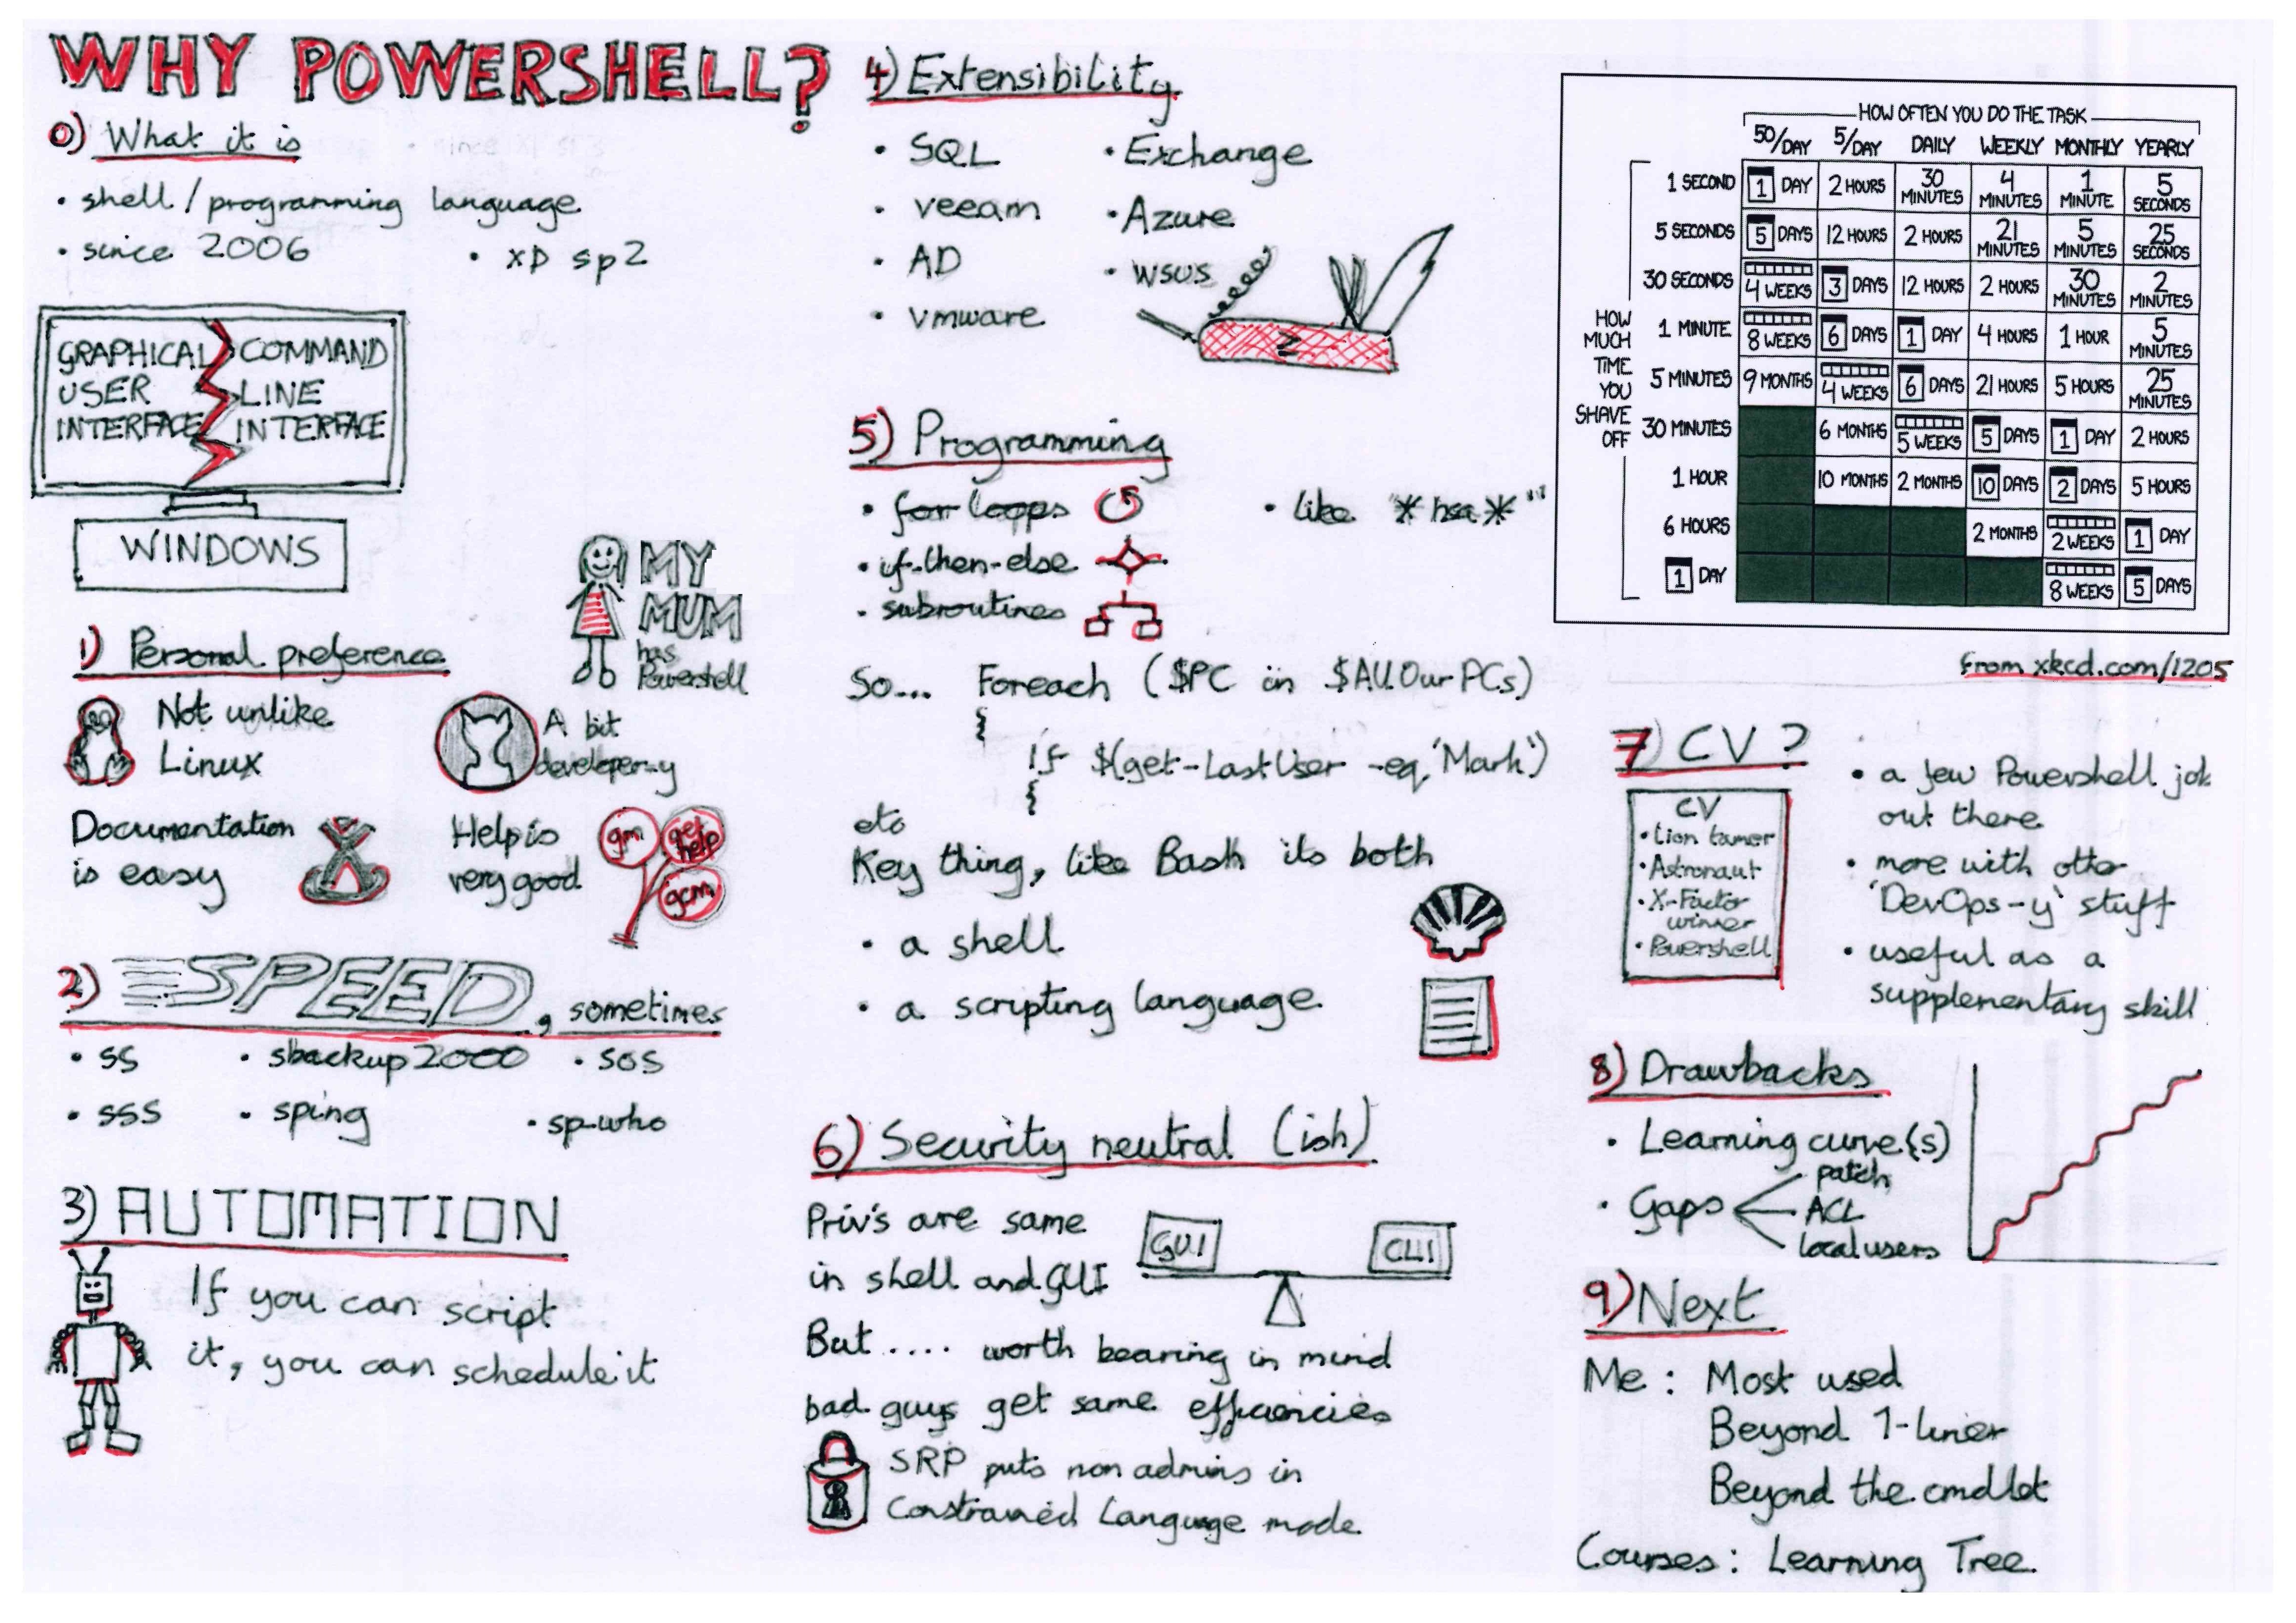 WHY POWERSHELL?
0) What it is
• shell / programming language
• since 2006
• xp sp2
GRAPHICAL USER INTERFACE
COMMAND LINE INTERFACE
WINDOWS
MY
MUM
has
Powershell
1) Personal preference
Not unlike
Linux
A bit
developer-y
Documentation
is easy
Help is
very good
gm
get help
gcm
2) SPEED, sometimes
• ss
• sbackup2000
• sos
• sss
• sping
• sp-who
3) AUTOMATION
If you can script
it, you can schedule it
4) Extensibility
• SQL
• Exchange
• veeam
• Azure
• AD
• wsus
• vmware
5) Programming
• for loops
• like *hsa*"
• if-then-else
• subroutines
So... Foreach ($PC in $AllOurPCs)
{
If $(get-LastUser -eq 'Mark')
{
etc
Key thing, like Bash its both
• a shell
• a scripting language
6) Security neutral (ish)
Priv's are same
in shell and GUI
GUI
CLI
But .... worth bearing in mind
bad guys get same efficiencies
SRP puts non admins in
Constrained Language mode
HOW OFTEN YOU DO THE TASK
50/DAY 5/DAY DAILY WEEKLY MONTHLY YEARLY
HOW MUCH TIME YOU SHAVE OFF
1 SECOND 1 DAY 2 HOURS 30 MINUTES 4 MINUTES 1 MINUTE 5 SECONDS
5 SECONDS 5 DAYS 12 HOURS 2 HOURS 21 MINUTES 5 MINUTES 25 SECONDS
30 SECONDS 4 WEEKS 3 DAYS 12 HOURS 2 HOURS 30 MINUTES 2 MINUTES
1 MINUTE 8 WEEKS 6 DAYS 1 DAY 4 HOURS 1 HOUR 5 MINUTES
5 MINUTES 9 MONTHS 4 WEEKS 6 DAYS 21 HOURS 5 HOURS 25 MINUTES
30 MINUTES 6 MONTHS 5 WEEKS 5 DAYS 1 DAY 2 HOURS
1 HOUR 10 MONTHS 2 MONTHS 10 DAYS 2 DAYS 5 HOURS
6 HOURS 2 MONTHS 2 WEEKS 1 DAY
1 DAY 8 WEEKS 5 DAYS
from xkcd.com/1205
7) CV?
CV
• Lion tamer
• Astronaut
• X-Factor
winner
• Powershell
• a few Powershell job
out there
• more with other
'DevOps-y' stuff
• useful as a
supplementary skill
8) Drawbacks
• Learning curve(s)
• Gaps
patch
ACL
local users
9) Next
Me : Most used
Beyond 1-liner
Beyond the cmdlet
Courses : Learning Tree